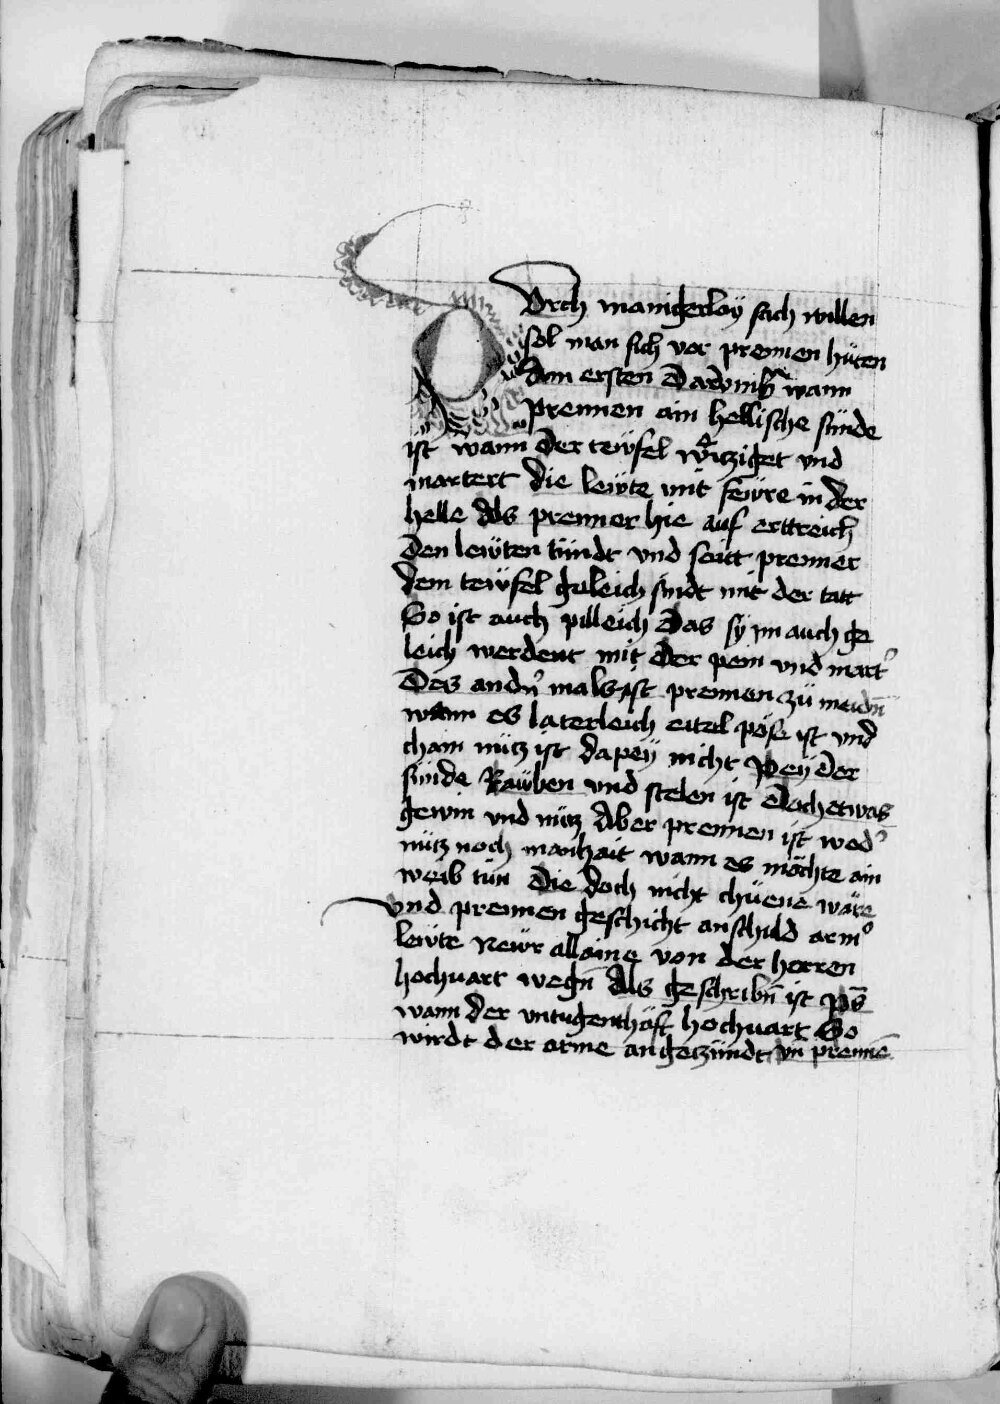 Durch manigerlay sach willen
sol man sich vor prennen hüten
Am ersten darumb wann
prennen ain hellische sünde
ist wann der tewfel witziget vnd
martert die lewte mit fewre in der
helle Als prenner hie auf erttreich
den lewten tündt vnd seitt prenner
dem tewfel geleich sindt mit der tatt
So ist auch pilleich das sy im auch ge
leich werdent mit der pein vnd mart̉
Des andn̉ mals ist prennen zü meidn̄
wann es lauterleich eitel pöse ist vnd
chain nütz ist dapey nicht Pey der
sünde Rauben vnd stelen ist doch etwas
gewin vnd nütz Aber prennen ist wed̉
nütz noch manhait wann es möchte ain
weib tün die doch nicht chüene wäre
vnd prennen geschicht an schuld arm̉
lewte Newr allaine von der herren
hochuart wegn̄ Als geschribn̄ ist ps̄
wann der vntugenthaft hochuart So
wirdt der arme angetzündt vn̄ prennē